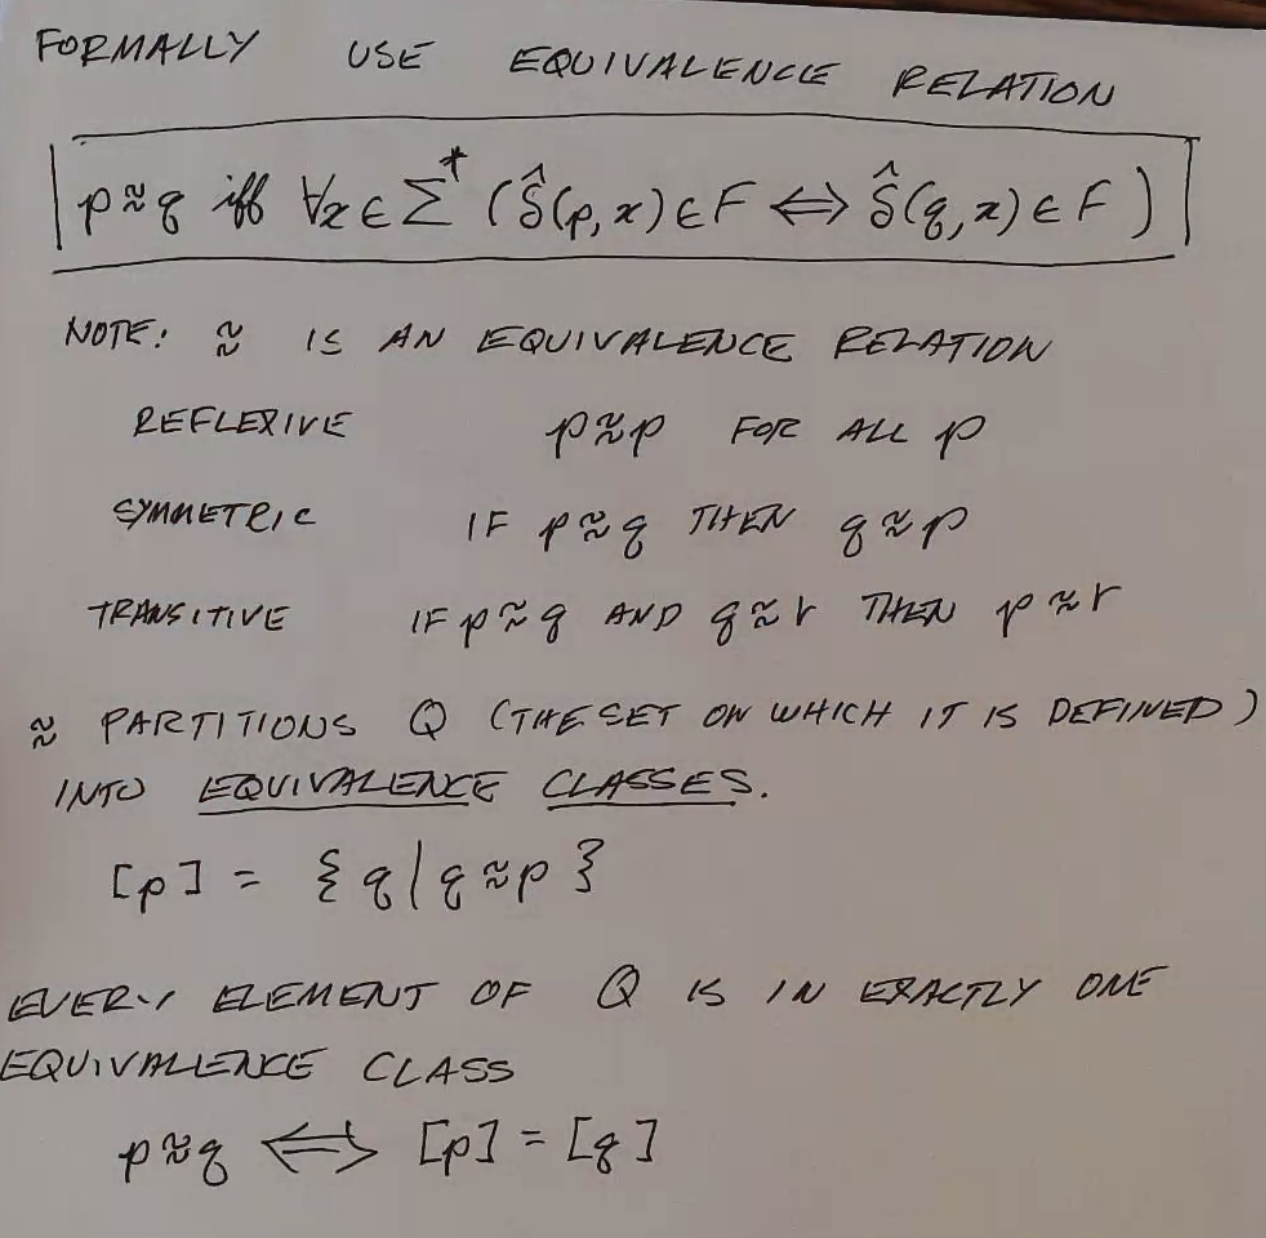 FORMALLY USE EQUIVALENCE RELATION
p ≈ q iff ∀x ∈ Σ* (δ̂(p, x) ∈ F ⟺ δ̂(q, x) ∈ F)
NOTE: ≈ IS AN EQUIVALENCE RELATION
REFLEXIVE p ≈ p FOR ALL p
SYMMETRIC IF p ≈ q THEN q ≈ p
TRANSITIVE IF p ≈ q AND q ≈ r THEN p ≈ r
≈ PARTITIONS Q (THE SET ON WHICH IT IS DEFINED)
INTO EQUIVALENCE CLASSES.
[p] = { q | q ≈ p }
EVERY ELEMENT OF Q IS IN EXACTLY ONE
EQUIVALENCE CLASS
p ≈ q ⟺ [p] = [q]